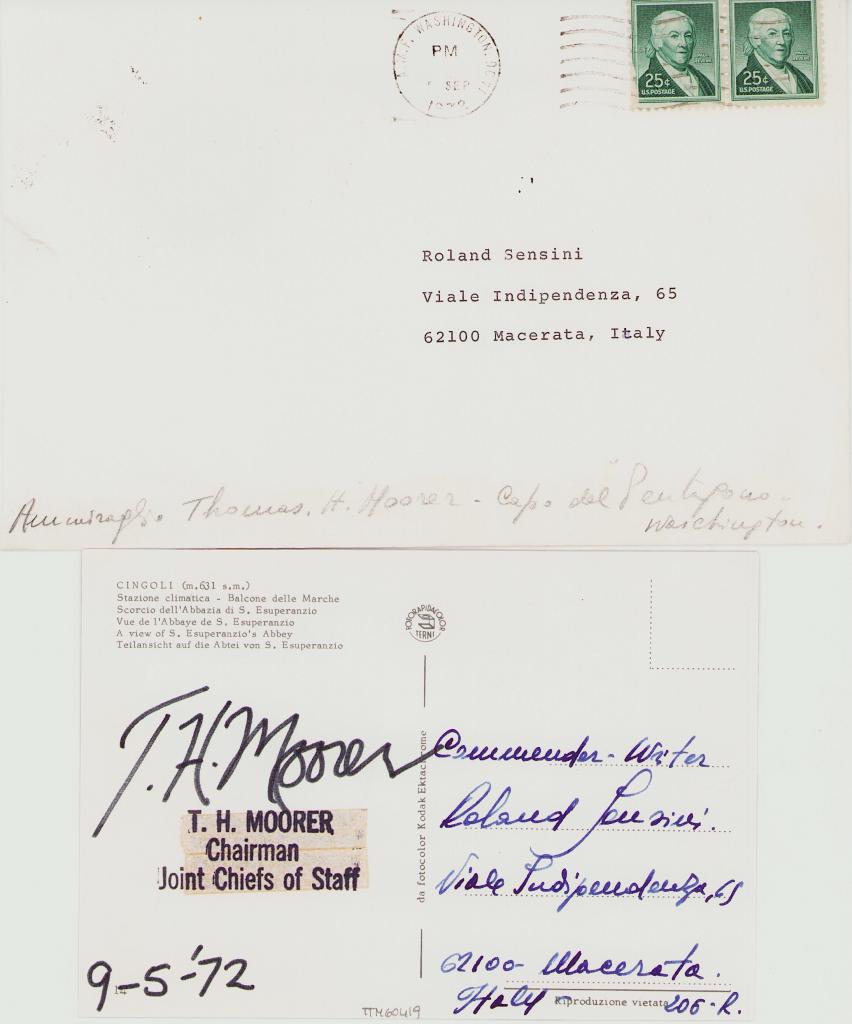 A.M.F. WASHINGTON, DC
PM
SEP
1972
25¢
U.S. POSTAGE
25¢
U.S. POSTAGE
Roland Sensini
Viale Indipendenza, 65
62100 Macerata, Italy
Ammiraglio Thomas. H. Moorer - Capo del Pentagono -
Waschington.
CINGOLI (m.631 s.m.)
Stazione climatica - Balcone delle Marche
Scorcio dell'Abbazia di S. Esuperanzio
Vue de l'Abbaye de S. Esuperanzio
A view of S. Esuperanzio's Abbey
Teilansicht auf die Abtei von S. Esuperanzio
FOTORAPIDACOLOR
TERNI
T. H. Moorer
T. H. MOORER
Chairman
Joint Chiefs of Staff
9-5-'72
da fotocolor Kodak Ektachrome
Commender - Writer
Roland Sensini.
Viale Indipendenza, 65
62100 - Macerata.
Italy -
Riproduzione vietata
206-R.
TTM60419